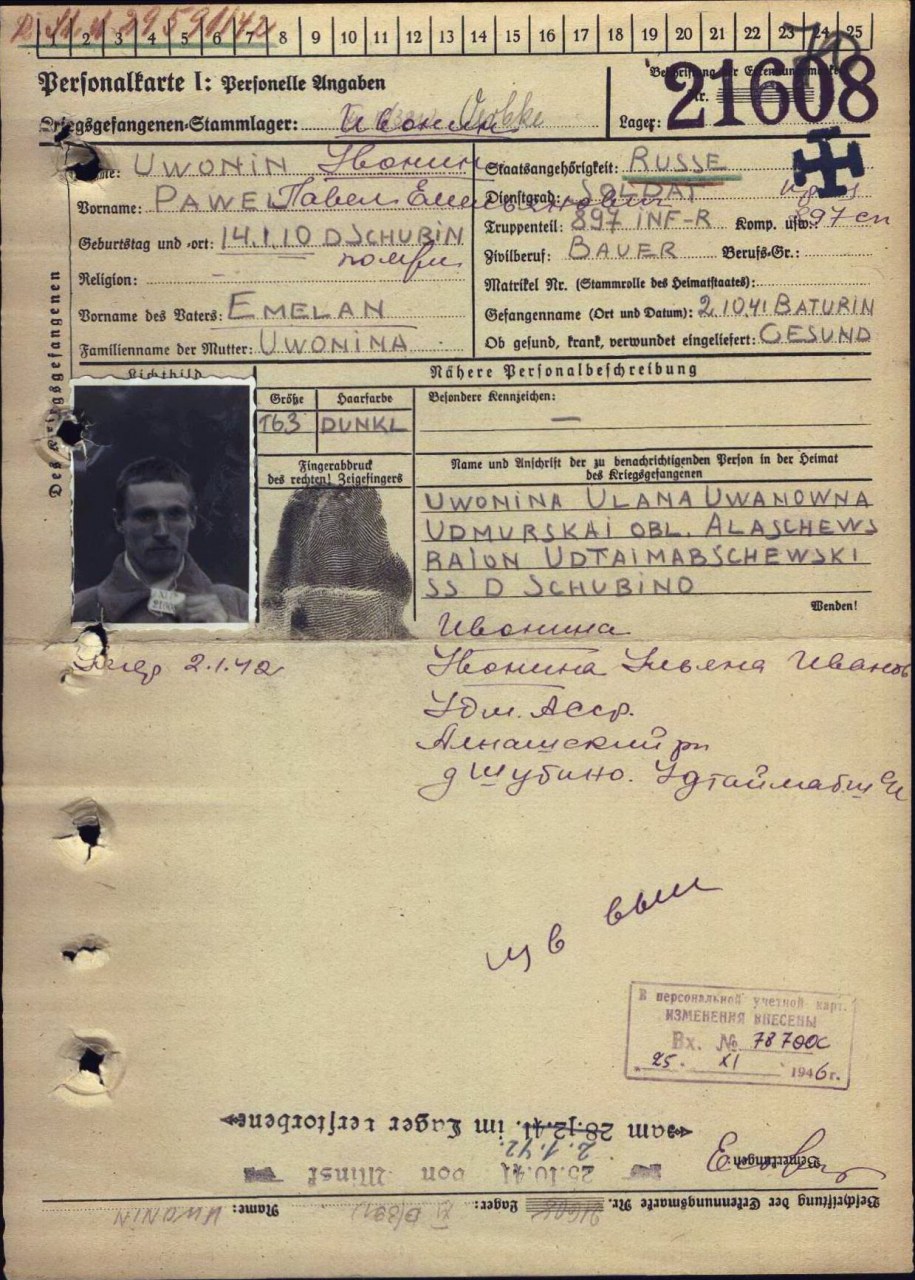 1 2 3 4 5 6 7 8 9 10 11 12 13 14 15 16 17 18 19 20 21 22 23 24 25
Personalkarte I: Personelle Angaben
Kriegsgefangenen-Stammlager: Ивонин
Beschriftung der Erkennungsmarke
Nr. 21608
Lager:
Des Kriegsgefangenen
Name: UWONIN Ивонин
Vorname: PAWEL Павел Емельянович
Geburtstag und -ort: 14.1.10 D SCHUBIN
Religion: —
Vorname des Vaters: EMELAN
Familienname der Mutter: UWONINA
Staatsangehörigkeit: RUSSE
Dienstgrad: SOLDAT
Truppenteil: 897 INF-R Komp. usw.: 897 сп
Zivilberuf: BAUER Berufs-Gr.:
Matrikel Nr. (Stammrolle des Heimatstaates):
Gefangenname (Ort und Datum): 2.10.41 BATURIN
Ob gesund, krank, verwundet eingeliefert: GESUND
Lichtbild
Nähere Personalbeschreibung
Größe Haarfarbe
163 DUNKL
Besondere Kennzeichen: —
Fingerabdruck
des rechten! Zeigefingers
Name und Anschrift der zu benachrichtigenden Person in der Heimat
des Kriegsgefangenen
UWONINA ULANA UWANOWNA
UDMURSKAI OBL. ALASCHEWS
RAION UDTAIMABSCHEWSKI
SS D SCHUBINO
Wenden!
Ивонина
Ивонина Ульяна Иванов
Удм. АССР.
Алнашский рн
д Шубино.
2.1.42
В персональной учетной карт.
ИЗМЕНЕНИЯ ВНЕСЕНЫ
Вх. №
25. XI 1946г.
am 28.12.41. im Lager verstorben
2.1.42.
25.10.41 von Minsk
Bemerkungen:
Beschriftung der Erkennungsmarke Nr. 21608 Lager: Name: UWONIN